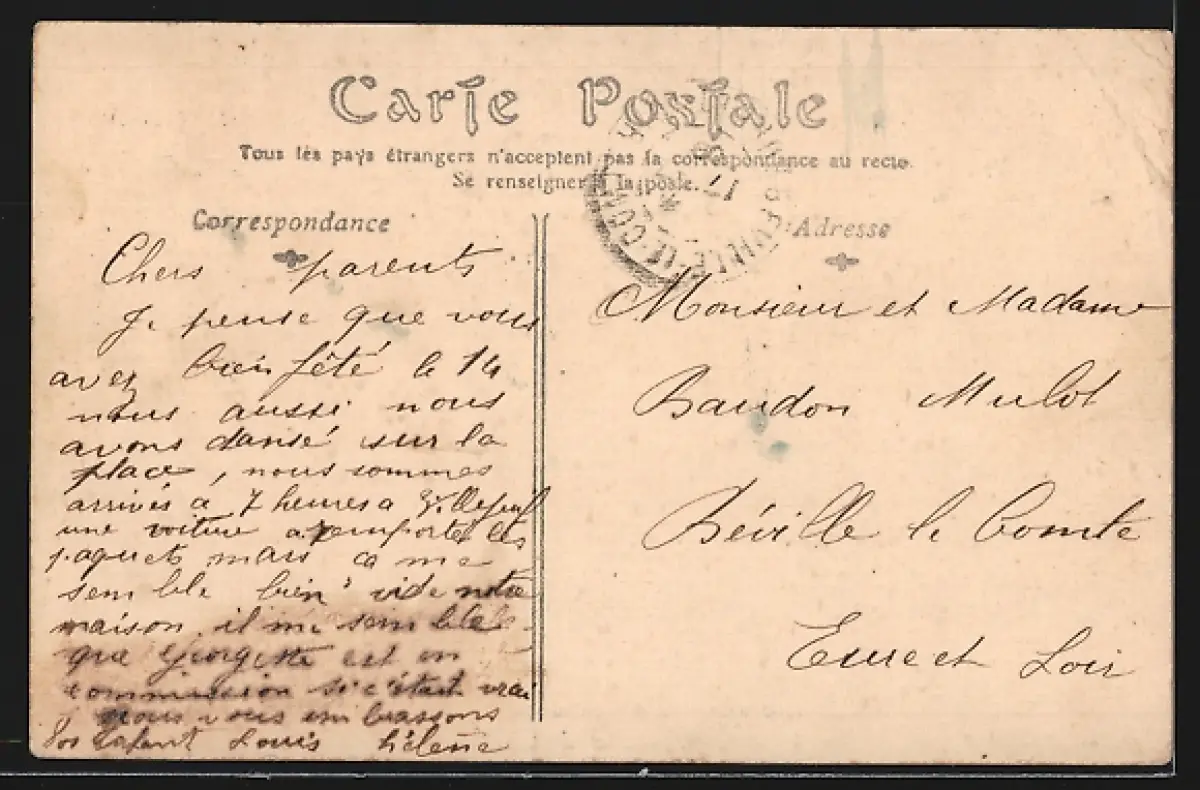 Carte Postale
Tous les pays étrangers n'acceptent pas la correspondance au recto.
Se renseigner à la poste.
Correspondance
Chers parents
Je pense que vous
avez bien fêté le 14
nous aussi nous
avons dansé sur la
place, nous sommes
arrivés à 7 heures a Villejuif
une voiture a remporté les
paquets mais ca me
semble bien vide notre
maison, il me semble
que Georgette est en
commission si c'était vrai
nous vous embrassons
Vos Enfant Louis Hélène
Adresse
Monsieur et Madame
Baudon Mulot
Béville le Comte
Eure et Loir
BEVILLE-LE-COMTE
17